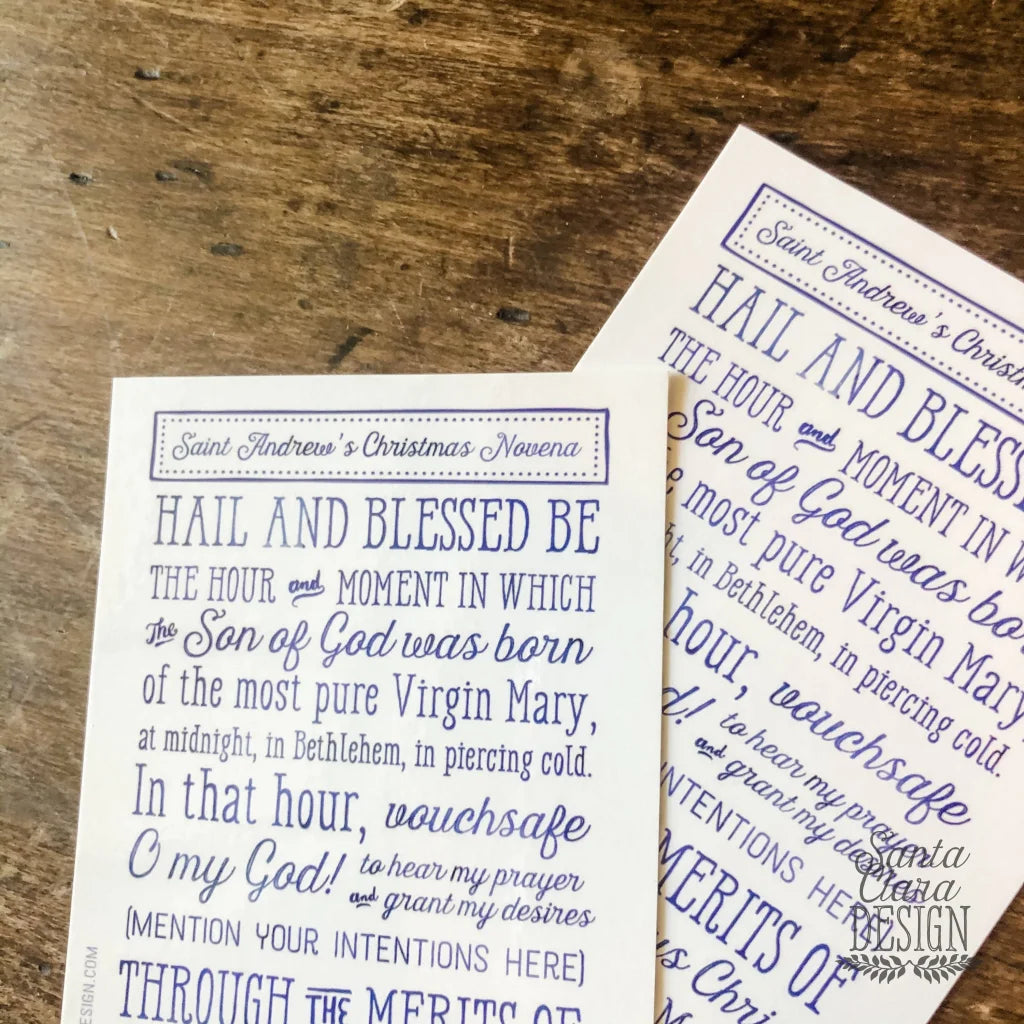 Saint Andrew's Christmas Novena
HAIL AND BLESSED BE
THE HOUR and MOMENT IN WHICH
The Son of God was born
of the most pure Virgin Mary,
at midnight, in Bethlehem, in piercing cold.
In that hour, vouchsafe
O my God! to hear my prayer
and grant my desires
(MENTION YOUR INTENTIONS HERE)
THROUGH THE MERITS OF
DESIGN.COM
Saint Andrew's Christm
HAIL AND BLESS
THE HOUR and MOMENT IN W
Son of God was bo
most pure Virgin Mary
ht, in Bethlehem, in piercing cold.
hour, vouchsafe
d! to hear my prayer
and grant my desires
INTENTIONS HERE)
MERITS OF
us Chri
Santa
Clara
DESIGN